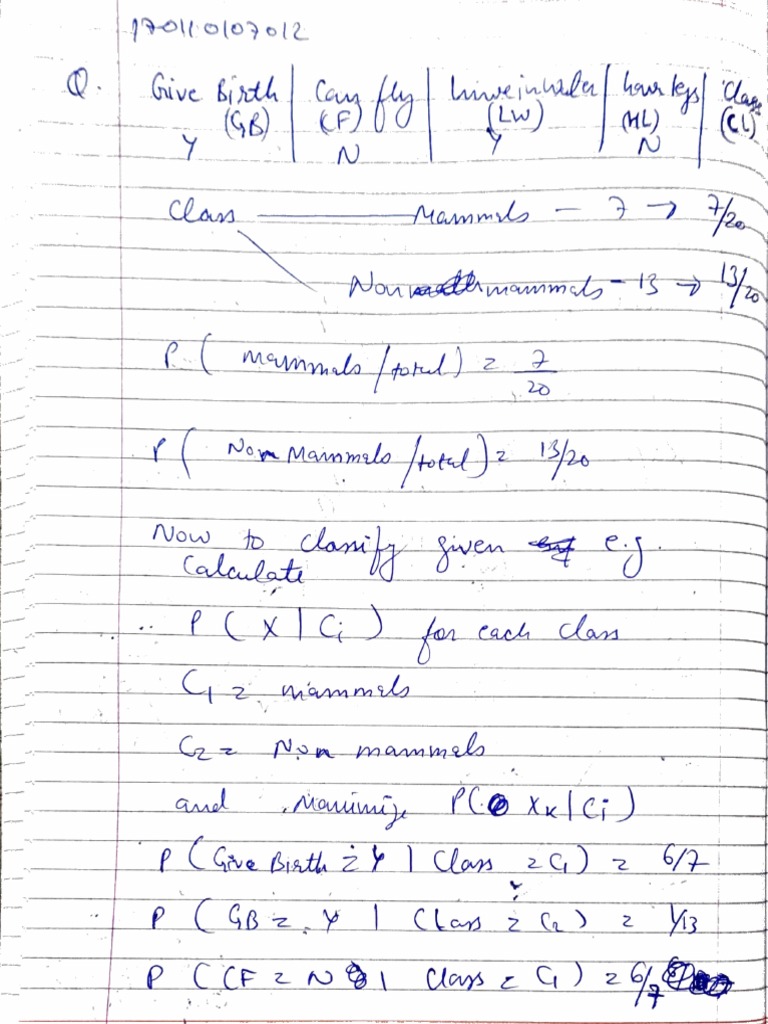 170110107012
Q. Give Birth | Can fly | Live in water | have legs | Class
(GB) | (CF) | (LW) | (HL) | (CL)
Y | N | Y | N
Class — Mammals - 7 → 7/20
Non mammals - 13 → 13/20
P ( mammals / total ) = 7/20
P ( Non Mammals / total ) = 13/20
Now to classify given e.g.
Calculate
P ( X | Ci ) for each class
C1 = mammals
C2 = Non mammals
and Maximize P( Xk | Ci )
P ( Give Birth = Y | Class = C1 ) = 6/7
P ( GB = Y | Class = C2 ) = 1/13
P ( CF = N | Class = C1 ) = 6/7